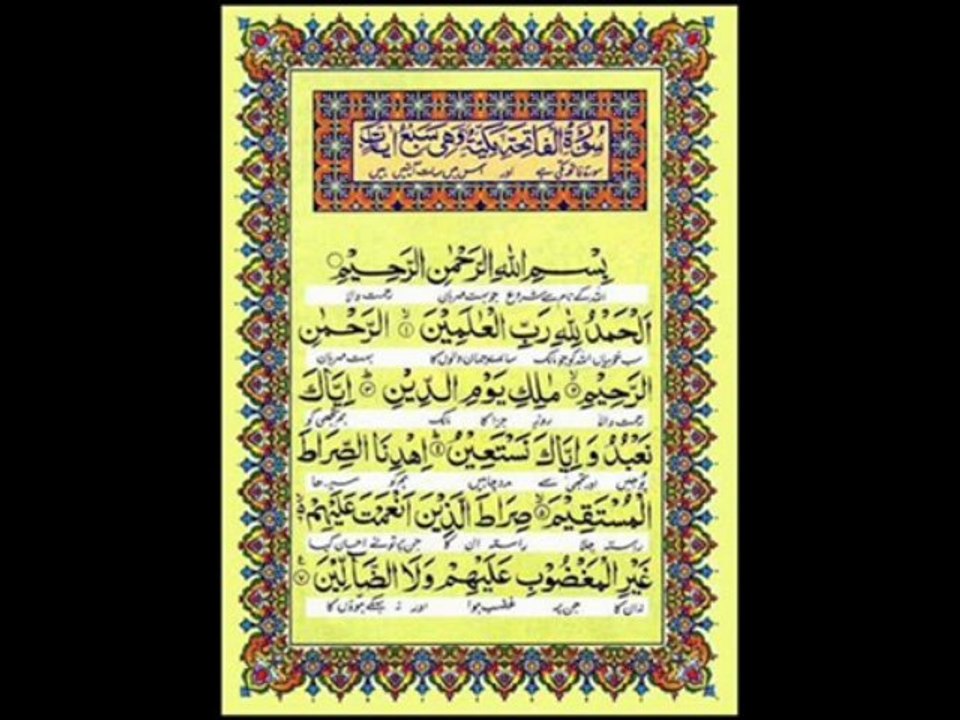 سُوْرَةُ الْفَاتِحَةِ مَكِّيَّةٌ وَّهِىَ سَبْعُ اٰيَاتٍ
سورۃ فاتحہ مکی ہے اور اس میں سات آیتیں ہیں
بِسْمِ اللّٰهِ الرَّحْمٰنِ الرَّحِيْمِ
اللہ کے نام سے شروع جو بہت مہربان رحمت والا
اَلْحَمْدُ لِلّٰهِ رَبِّ الْعٰلَمِيْنَ ۙ۝۱ الرَّحْمٰنِ
سب خوبیاں اللہ کو جو مالک سارے جہان والوں کا بہت مہربان
الرَّحِيْمِ ۙ۝۲ مٰلِكِ يَوْمِ الدِّيْنِ ؕ۝۳ اِيَّاكَ
رحمت والا روز جزا کا مالک ہم تجھی کو
نَعْبُدُ وَ اِيَّاكَ نَسْتَعِيْنُ ؕ۝۴ اِهْدِنَا الصِّرَاطَ
پوجیں اور تجھی سے مدد چاہیں ہم کو سیدھا
الْمُسْتَقِيْمَ ۙ۝۵ صِرَاطَ الَّذِيْنَ اَنْعَمْتَ عَلَيْهِمْ ۙ۝۶
راستہ چلا راستہ ان کا جن پر تو نے احسان کیا
غَيْرِ الْمَغْضُوْبِ عَلَيْهِمْ وَلَا الضَّآلِّيْنَ ۝۷
نہ ان کا جن پر غضب ہوا اور نہ بہکے ہوؤں کا